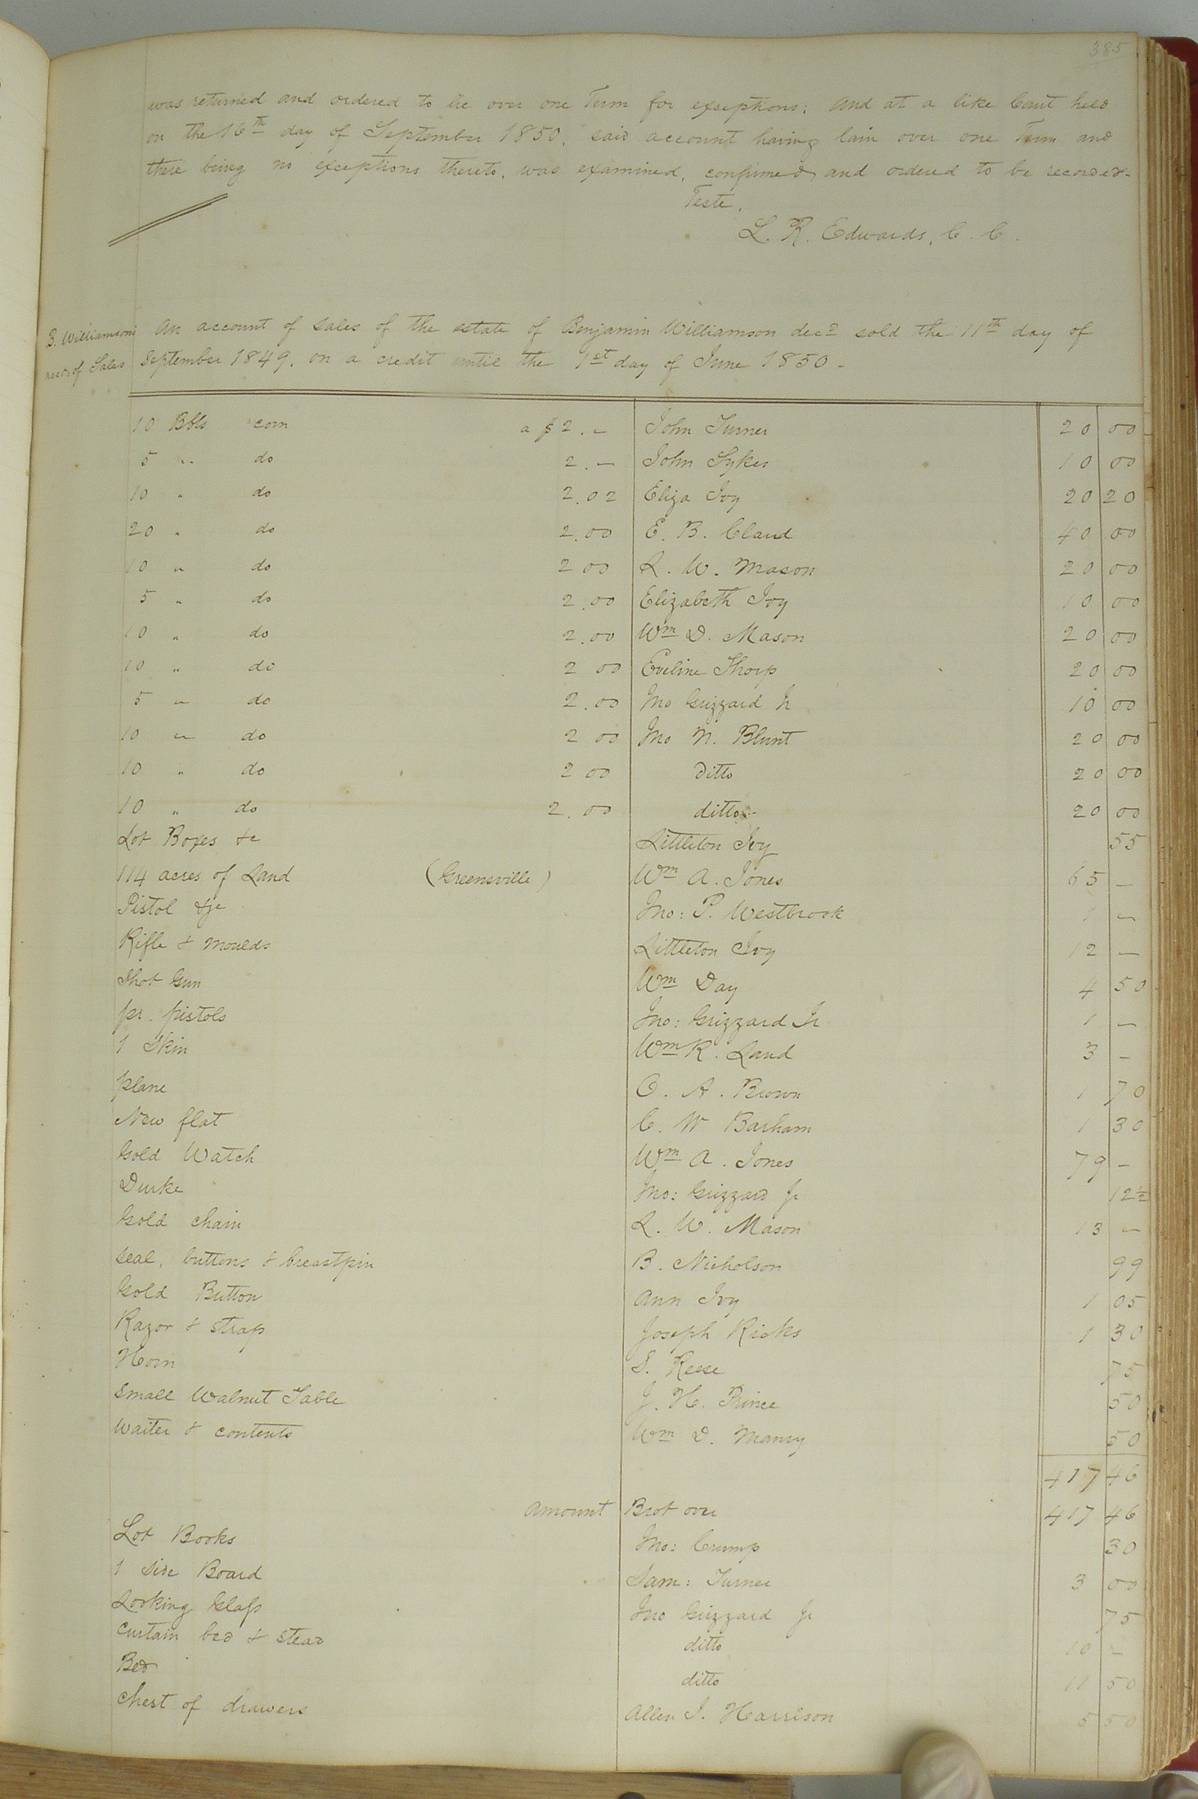 385
was returned and ordered to lie over one Term for exceptions; and at a like Court held
on the 16th day of September 1850, said account having lain over one Term and
there being no exceptions thereto, was examined, confirmed and ordered to be recorded.
Teste,
L. R. Edwards, C. C.
B. Williamson's An account of sales of the estate of Benjamin Williamson decd sold the 11th day of
acct. of Sales September 1849, on a credit until the 1st day of June 1850.
10 Bbls corn a $2.– John Turner 20 00
5 " do 2.– John Sykes 10 00
10 " do 2.02 Eliza Ivy 20 20
20 " do 2.00 E. B. Claud 40 00
10 " do 2 00 L. W. Mason 20 00
5 " do 2.00 Elizabeth Ivy 10 00
10 " do 2.00 Wm D. Mason 20 00
10 " do 2 00 Eveline Thorp 20 00
5 " do 2.00 Jno Grizzard Jr 10 00
10 " do 2 00 Jno N. Blunt 20 00
10 " do 2 00 Ditto 20 00
10 " do 2.00 ditto 20 00
Lot Boxes &c Littleton Ivy 55
114 acres of Land (Greensville) Wm A. Jones 65 –
Pistol &c Jno: P. Westbrook 1 –
Rifle & moulds Littleton Ivy 12 –
Shot Gun Wm Day 4 50
pr. pistols Jno: Grizzard Jr 1 –
1 Skin Wm R. Land 3 –
plane O. A. Brown 1 70
New flat C. W Barham 1 30
Gold Watch Wm A. Jones 79 –
Durke Jno: Grizzard Jr 12½
Gold chain L. W. Mason 13 –
seal, buttons & breastpin B. Nicholson 99
Gold Button Ann Ivy 1 05
Razor & strap Joseph Ricks 1 30
Horn S. Reese 75
Small Walnut Table J. H. Prince 50
Waiter & contents Wm D. Manry 50
417 46
Amount Brot over 417 46
Lot Books Jno: Crump 30
1 Side Board Sam: Turner 3 00
Looking Glass Jno Grizzard Jr 75
Curtain bed & stead ditto 10 –
Bed ditto 11 50
Chest of drawers Allen J. Harrison 5 50